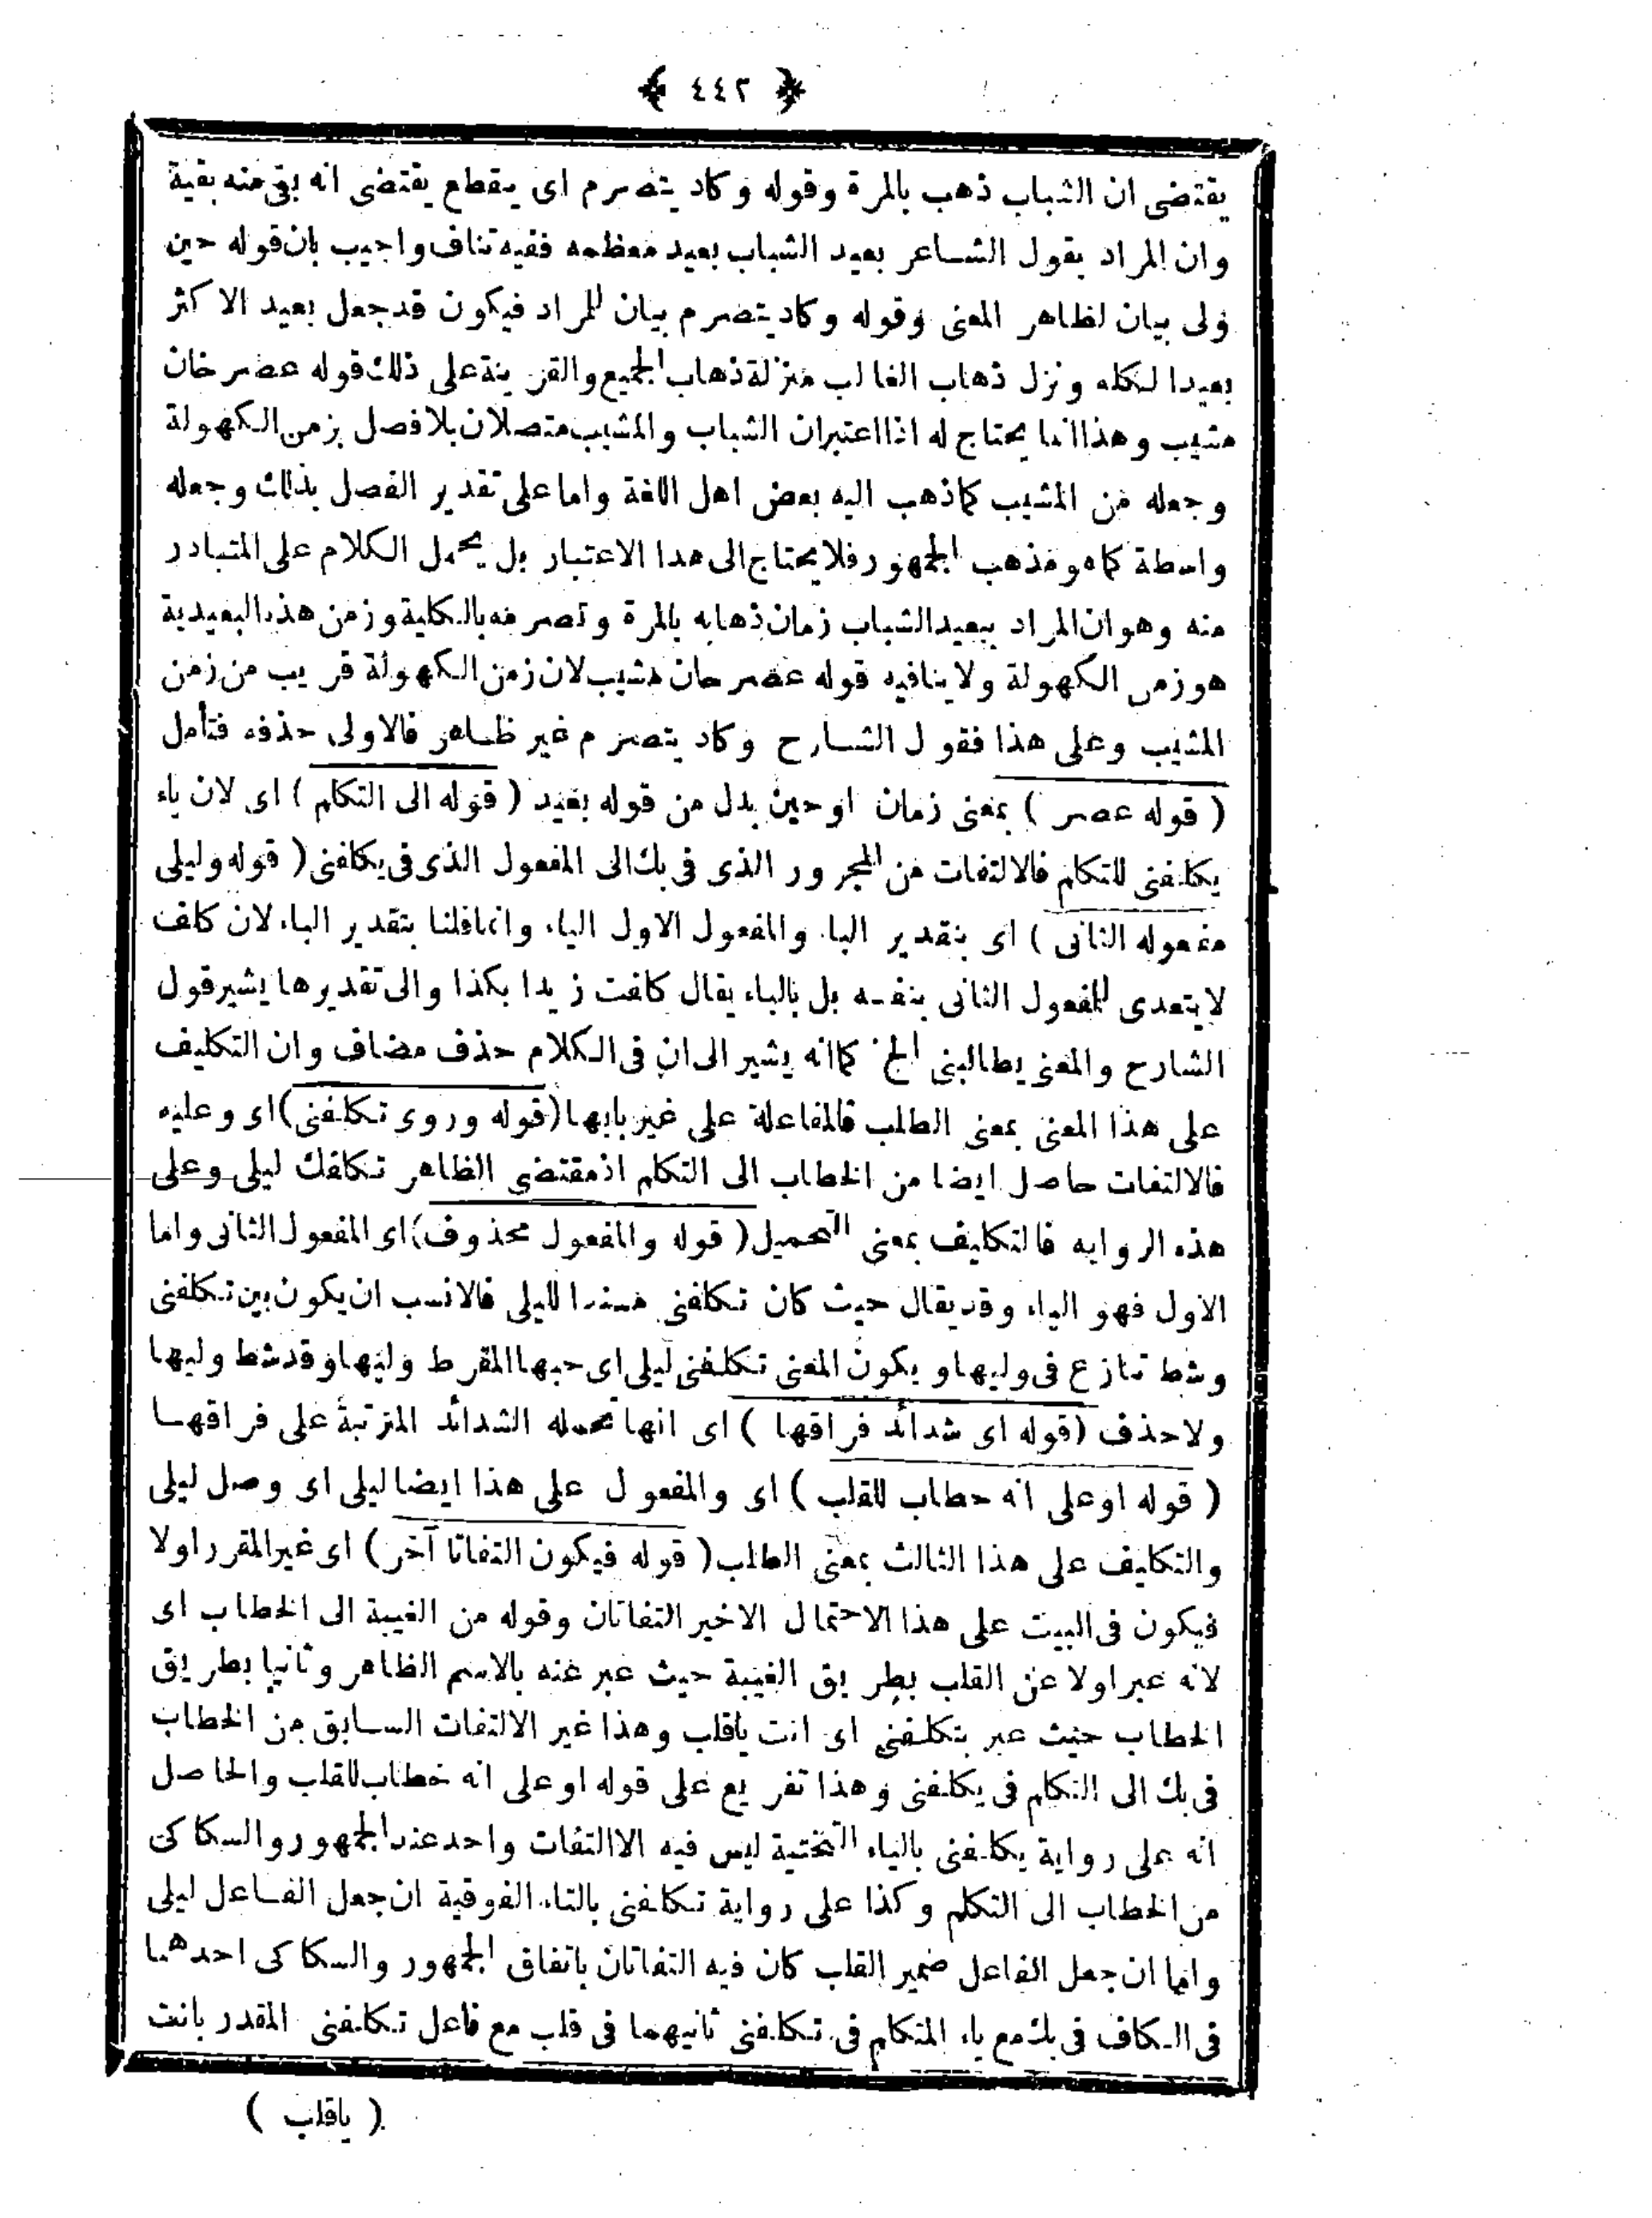 ﴿ ٤٤٢ ﴾
يقتضى ان الشباب ذهب بالمرة وقوله وكاد يتصرم اى ينقطع يقتضى انه بقى منه بقية
وان المراد بقول الشاعر بعيد الشباب بعيد معظمه ففيه تناف واجيب بان قوله حين
ولى بيان لظاهر المعنى وقوله وكاد يتصرم بيان للمراد فيكون قد جعل بعيد الاكثر
بعيدا لكله ونزل ذهاب الغالب منزلة ذهاب الجميع والقرينة على ذلك قوله عصر حان
مشيب وهذا انما يحتاج له اذا اعتبر ان الشباب والمشيب متصلان بلا فصل بزمن الكهولة
وجعله من المشيب كما ذهب اليه بعض اهل اللغة واما على تقدير الفصل بذلك وجعله
واسطة كما هو مذهب الجمهور فلا يحتاج الى هذا الاعتبار بل يحمل الكلام على المتبادر
منه وهو ان المراد ببعيد الشباب زمان ذهابه بالمرة وتصرمه بالكلية وزمن هذه البعيدية
هو زمن الكهولة ولا ينافيه قوله عصر حان مشيب لان زمن الكهولة قريب من زمن
المشيب وعلى هذا فقول الشارح وكاد يتصرم غير ظاهر فالاولى حذفه فتأمل
( قوله عصر ) بمعنى زمان او حين بدل من قوله بعيد ( قوله الى التكلم ) اى لان ياء
يكلفنى للتكلم فالالتفات من المجرور الذى فى بك الى المفعول الذى فى يكلفنى ( قوله وليلى
مفعوله الثانى ) اى بتقدير الباء والمفعول الاول الياء وانما قلنا بتقدير الباء لان كلف
لا يتعدى للمفعول الثانى بنفسه بل بالباء يقال كلفت زيدا بكذا والى تقديرها يشير قول
الشارح والمعنى يطالبنى الخ كما انه يشير الى ان فى الكلام حذف مضاف وان التكليف
على هذا المعنى بمعنى الطلب فالمفاعلة على غير بابها ( قوله وروى تكلفنى ) اى وعليه
فالالتفات حاصل ايضا من الخطاب الى التكلم اذ مقتضى الظاهر تكلفك ليلى وعلى
هذه الرواية فالتكليف بمعنى التحميل ( قوله والمفعول محذوف ) اى المفعول الثانى واما
الاول فهو الياء وقد يقال حيث كان تكلفنى مسندا لليلى فالانسب ان يكون بين تكلفنى
وشط تنازع فى وليها ويكون المعنى تكلفنى ليلى اى حبها المفرط وليها وقد شط وليها
ولا حذف ( قوله اى شدائد فراقها ) اى انها تحمله الشدائد المترتبة على فراقها
( قوله او على انه خطاب للقلب ) اى والمفعول على هذا ايضا ليلى اى وصل ليلى
والتكليف على هذا الثالث بمعنى الطلب ( قوله فيكون التفاتا آخر ) اى غير المقرر اولا
فيكون فى البيت على هذا الاحتمال الاخير التفاتان وقوله من الغيبة الى الخطاب اى
لانه عبر اولا عن القلب بطريق الغيبة حيث عبر عنه بالاسم الظاهر وثانيا بطريق
الخطاب حيث عبر بتكلفنى اى انت ياقلب وهذا غير الالتفات السابق من الخطاب
فى بك الى التكلم فى يكلفنى وهذا تفريع على قوله او على انه خطاب للقلب والحاصل
انه على رواية يكلفنى بالياء التحتية ليس فيه الا التفات واحد عند الجمهور والسكاكى
من الخطاب الى التكلم وكذا على رواية تكلفنى بالتاء الفوقية ان جعل الفاعل ليلى
واما ان جعل الفاعل ضمير القلب كان فيه التفاتان باتفاق الجمهور والسكاكى احدهما
فى الكاف فى بك مع ياء المتكلم فى تكلفنى ثانيهما فى قلب مع فاعل تكلفنى المقدر بانت
( ياقلب )